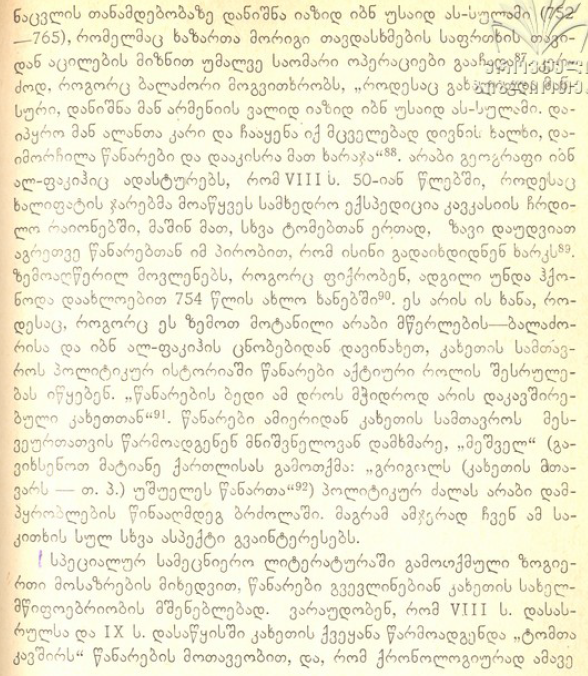 ნაცვლის თანამდებობაზე დანიშნა იაზიდ იბნ უსაიდ ას-სულამი (752
—765), რომელმაც ხაზართა მორიგი თავდასხმების საფრთხის თავი-
დან აცილების მიზნით უმალვე საომარი ოპერაციები გააჩაღა⁸⁷.
ძოდ, როგორც ბალაძორი მოგვითხრობს, „როდესაც გახალიფდა მან-
სური, დანიშნა მან არმენიის ვალიდ იაზიდ იბნ უსაიდ ას-სულამი. და-
იპყრო მან ალანთა კარი და ჩააყენა იქ მცველებად დივნის ხალხი, და-
იმორჩილა წანარები და დააკისრა მათ ხარაჯა“⁸⁸. არაბი გეოგრაფი იბნ
ალ-ფაკიჰიც ადასტურებს, რომ VIII ს. 50-იან წლებში, როდესაც
ხალიფატის ჯარებმა მოაწყვეს სამხედრო ექსპედიცია კავკასიის ჩრდი-
ლო რაიონებში, მაშინ მათ, სხვა ტომებთან ერთად, ზავი დაუდვიათ
აგრეთვე წანარებთან იმ პირობით, რომ ისინი გადაიხდიდნენ ხარკს⁸⁹.
ზემოაღწერილ მოვლენებს, როგორც ფიქრობენ, ადგილი უნდა ჰქო-
ნოდა დაახლოებით 754 წლის ახლო ხანებში⁹⁰. ეს არის ის ხანა, რო-
დესაც, როგორც ეს ზემოთ მოტანილი არაბი მწერლების—ბალაძო-
რისა და იბნ ალ-ფაკიჰის ცნობებიდან დავინახეთ, კახეთის სამთავ-
როს პოლიტიკურ ისტორიაში წანარები აქტიური როლის შესრულე-
ბას იწყებენ. „წანარების ბედი ამ დროს მჭიდროდ არის დაკავშირე-
ბული კახეთთან“⁹¹. წანარები ამიერიდან კახეთის სამთავროს მეს-
ვეურთათვის წარმოადგენენ მნიშვნელოვან დამხმარე, „მეშველ“ (გა-
ვიხსენოთ მატიანე ქართლისას გამოთქმა: „გრიგოლს (კახეთის მთა-
ვარს — თ. პ.) უშუელეს წანართა“⁹²) პოლიტიკურ ძალას არაბი დამ-
პყრობლების წინააღმდეგ ბრძოლაში. მაგრამ ამჯერად ჩვენ ამ სა-
კითხის სულ სხვა ასპექტი გვაინტერესებს.
სპეციალურ სამეცნიერო ლიტერატურაში გამოთქმული ზოგიე-
რთი მოსაზრების მიხედვით, წანარები გვევლინებიან კახეთის სახელ-
მწიფოებრიობის მშენებლებად. ვარაუდობენ, რომ VIII ს. დასას-
რულსა და IX ს. დასაწყისში კახეთის ქვეყანა წარმოადგენდა „ტომთა
კავშირს“ წანარების მოთავეობით, და, რომ ქრონოლოგიურად ამავე